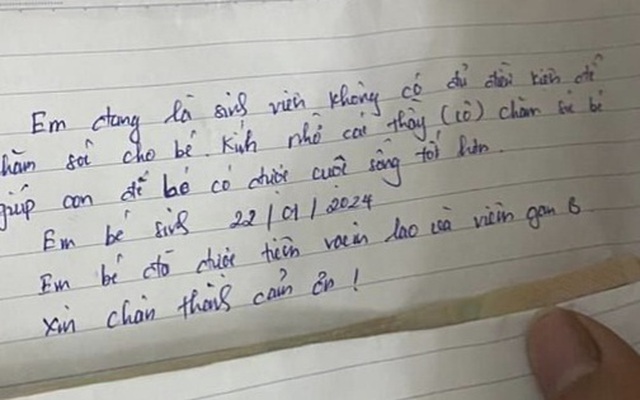 Em đang là sinh viên không có đủ điều kiện để
chăm sóc cho bé. Kính nhờ các thầy (cô) chăm sóc bé
giúp con để bé có được cuộc sống tốt hơn.
Em bé sinh 22/01/2024
Em bé đã được tiêm vacin lao và viêm gan B
Xin chân thành cảm ơn!